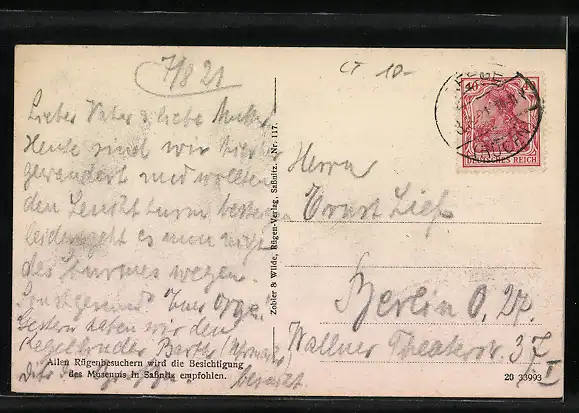 7/8 21
CT 10-
40
DEUTSCHES REICH
Lieber Vater & liebe Mutter
Heute sind wir hierher
gewandert und wollten
den Leuchtturm besteigen
leider geht es nun nicht
des Sturmes wegen.
Sonst gesund
Gestern haben wir den
Kegelbruder Barth
besucht.
Allen Rügenbesuchern wird die Besichtigung
des Museums in Saßnitz empfohlen.
Zobler & Wilde, Rügen-Verlag, Saßnitz. Nr. 117.
Herrn
Ernst Ließ
Berlin O. 27.
Wallner Theaterstr. 37 I
20 33993